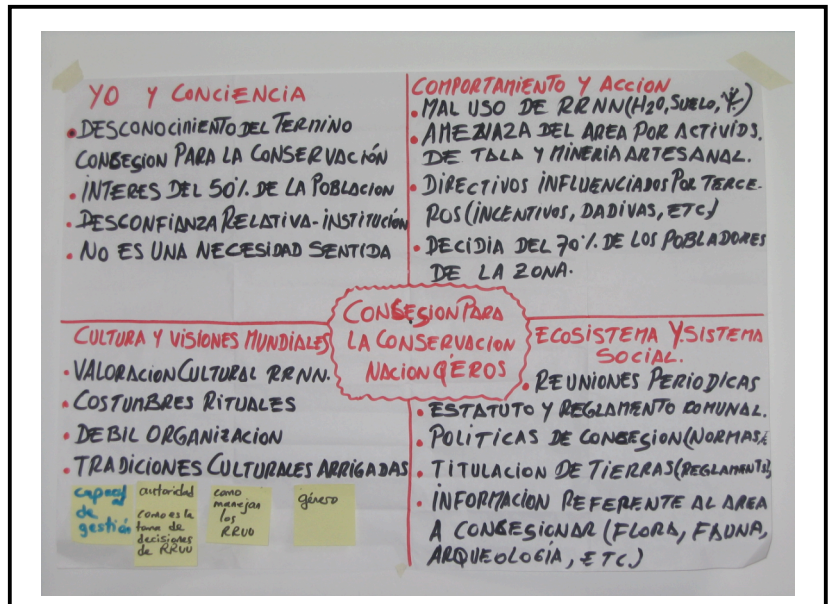 YO Y CONCIENCIA
• DESCONOCIMIENTO DEL TERMINO
CONSESION PARA LA CONSERVACIÓN
• INTERES DEL 50% DE LA POBLACION
• DESCONFIANZA RELATIVA - INSTITUCIÓN
• NO ES UNA NECESIDAD SENTIDA
COMPORTAMIENTO Y ACCION
• MAL USO DE RRNN (H2O, SUELO, )
• AMENAZA DEL AREA POR ACTIVIDS.
DE TALA Y MINERIA ARTESANAL.
• DIRECTIVOS INFLUENCIADOS POR TERCE-
ROS (INCENTIVOS, DADIVAS, ETC)
• DECIDIA DEL 70% DE LOS POBLADORES
DE LA ZONA.
CONSESION PARA
LA CONSERVACION
NACION Q'EROS
CULTURA Y VISIONES MUNDIALES
• VALORACION CULTURAL RRNN.
• COSTUMBRES RITUALES
• DEBIL ORGANIZACION
• TRADICIONES CULTURALES ARRIGADAS
capacd
de
gestión
autoridad
como es la
toma de
decisiones
de RRUU
como
manejan
los
RRUU
género
ECOSISTEMA Y SISTEMA
SOCIAL.
• REUNIONES PERIODICAS
• ESTATUTO Y REGLAMENTO COMUNAL.
• POLÍTICAS DE CONSESION (NORMAS,
• TITULACION DE TIERRAS (REGLAMENTS)
• INFORMACION REFERENTE AL AREA
A CONSESIONAR (FLORA, FAUNA,
ARQUEOLOGÍA, ETC.)